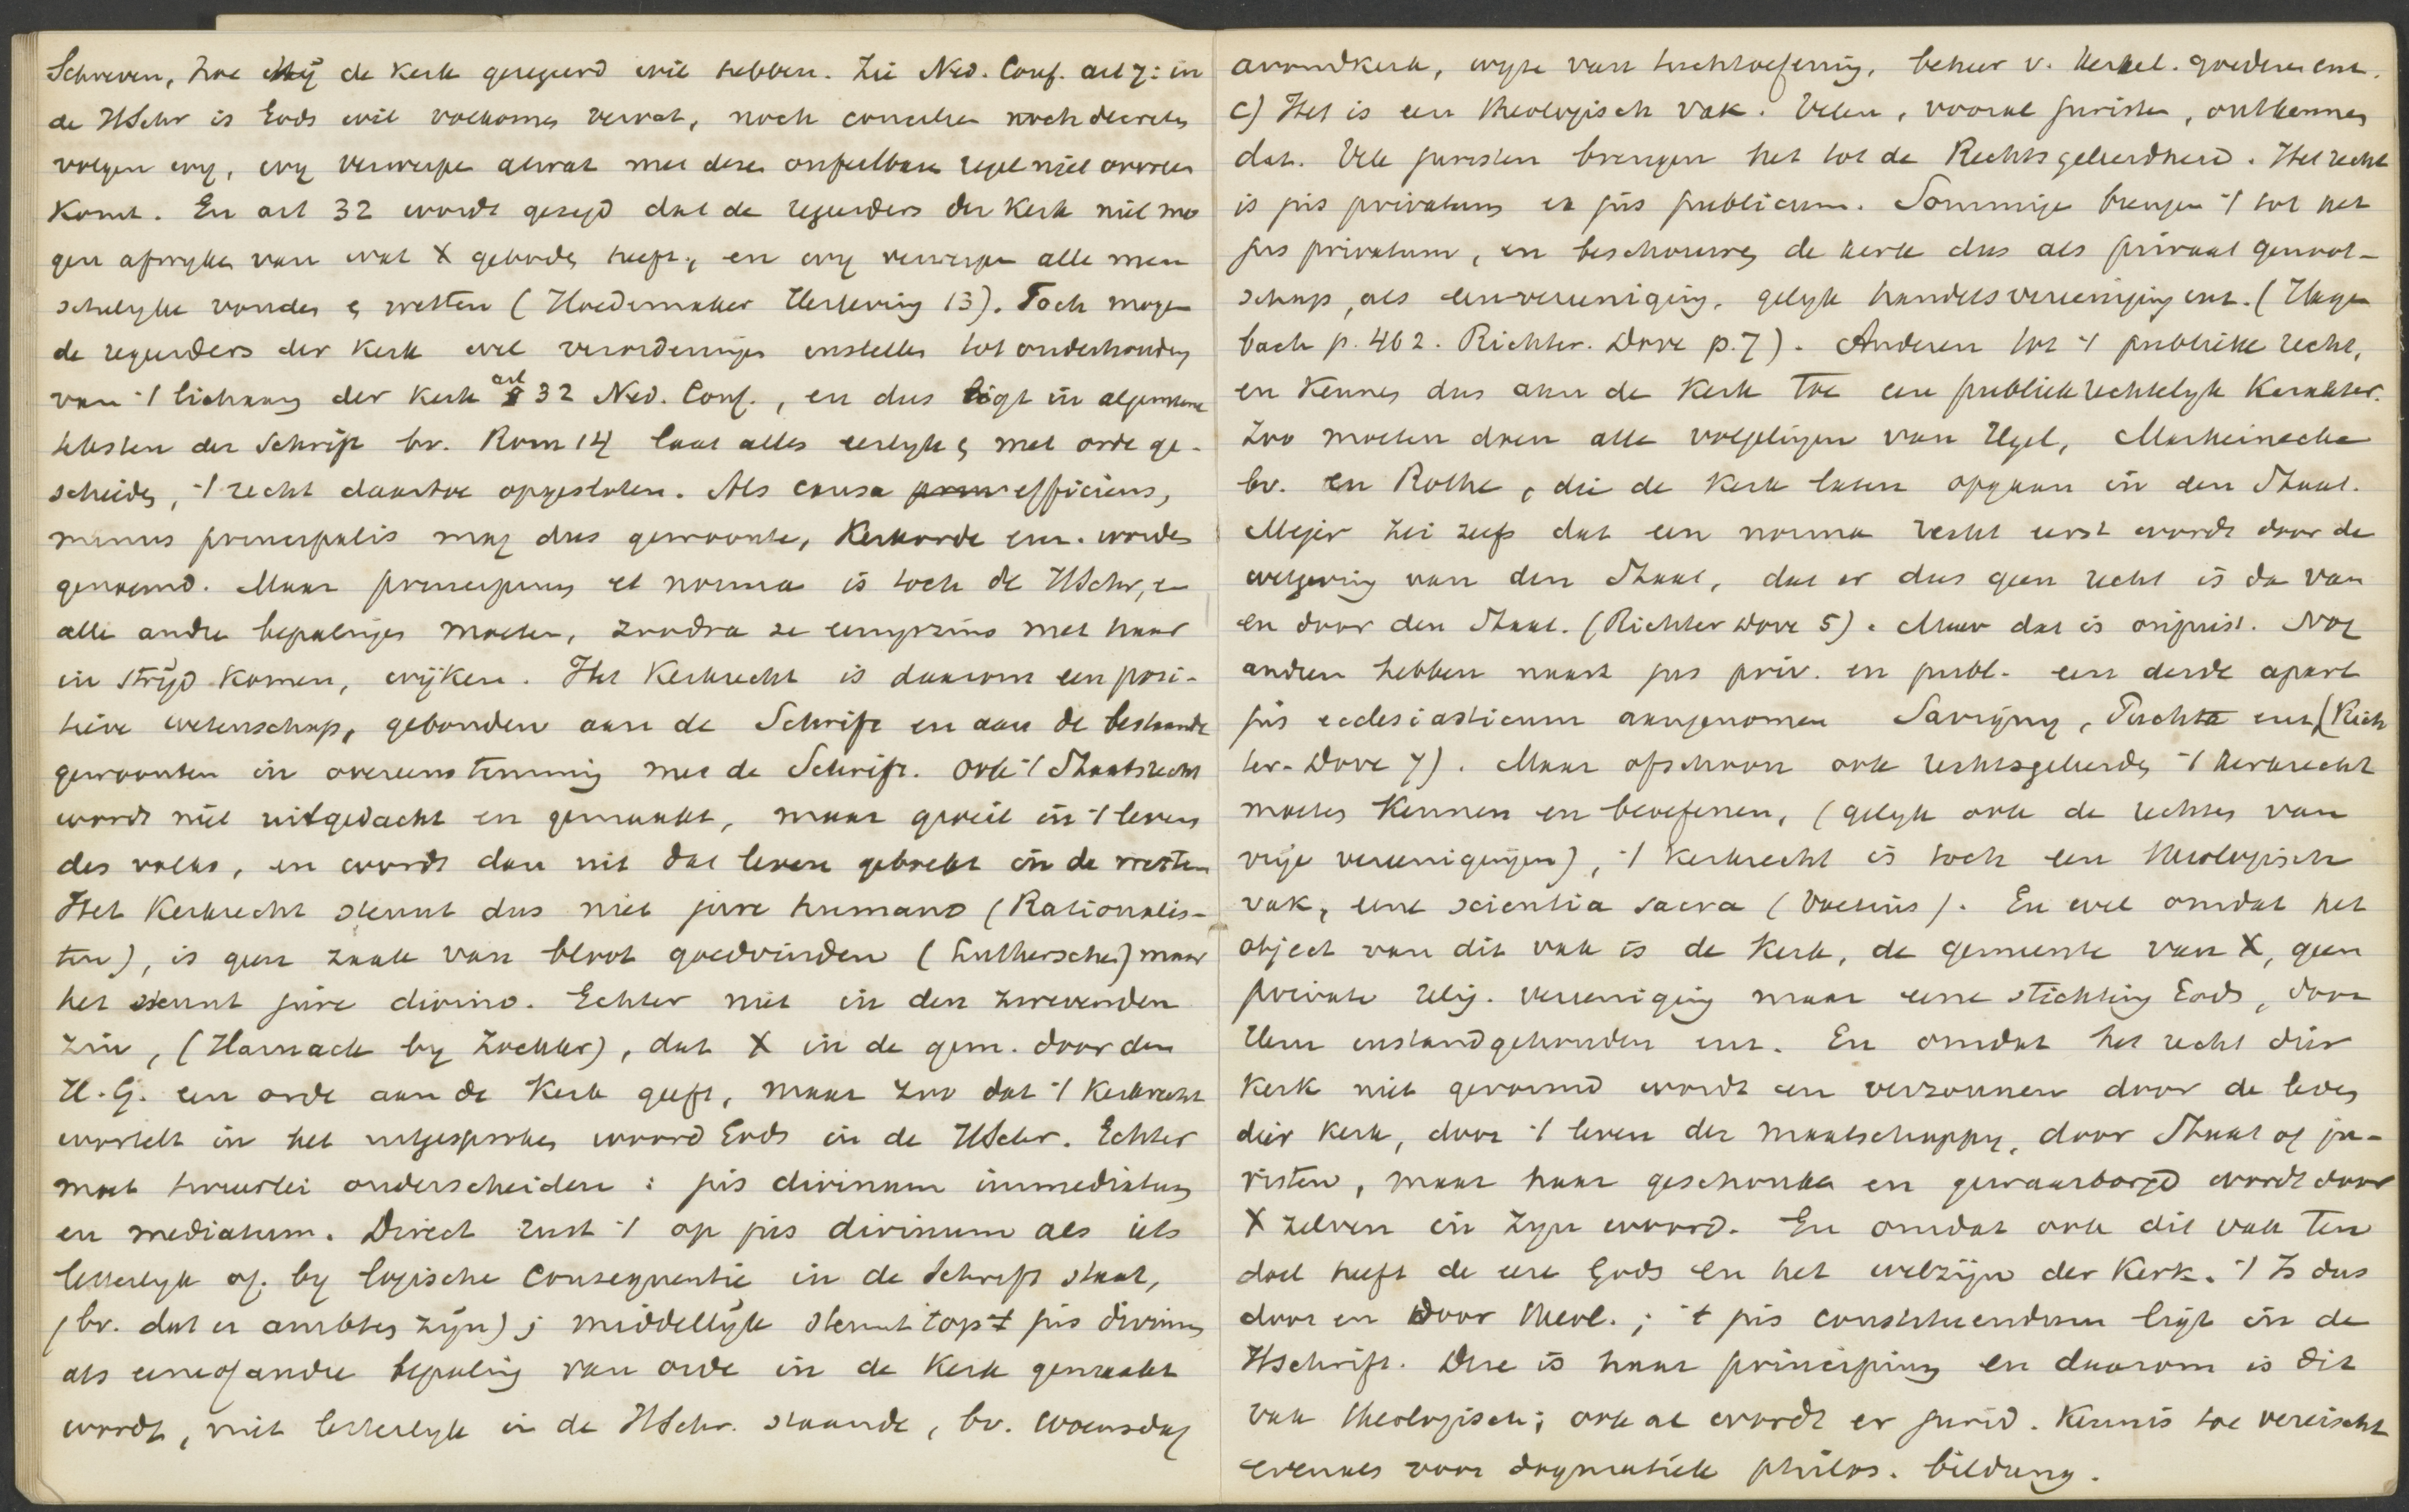 Schreven, hoe Hij de Kerk geregeerd wil hebben. Zie Ned. Conf. art 7: in
de HSchr is Gods wil volkomen vervat, noch concilien noch decreten
volgen wy, wy verwerpen alwat met deze onfeilbare regel niet overeen
komt. En art 32 wordt gezegd dat de regeerders der Kerk niet mo
gen afwyken van wat X geboden heeft, en wy verwerpen alle men
schelyke vonden & wetten (Hoedemaker Herleving 13). Toch mogen
de regeerders der Kerk wel verordeningen instellen tot onderhouding
van 't lichaam der Kerk art 32 Ned. Conf., en dus ligt in algemeene
teksten der Schrift bv. Rom 14 laat alles eerlyk & met orde ge-
scheiden, 't recht daartoe opgesloten. Als causa efficiens,
minus principalis mag dus gewoonte, Kerkorde enz. worden
genoemd. Maar principium et norma is toch de HSchr, en
alle andre bepalingen moeten, zoodra ze eenigzins met haar
in strijd komen, wijken. Het Kerkrecht is daarom een posi-
tieve wetenschap, gebonden aan de Schrift en aan de bestaande
gewoonten in overeenstemming met de Schrift. Ook 't Staatsrecht
wordt niet uitgedacht en gemaakt, maar groeit in 't leven
des volks, en wordt dan uit dat leven gebracht in de wetten
Het Kerkrecht steunt dus niet jure humano (Rationalis-
ten), is geen zaak van bloot goedvinden (Luthersche) maar
het steunt jure divino. Echter niet in den zwevenden
zin, (Harnack by Zöckler), dat X in de gem. door den
H.G. een orde aan de Kerk geeft, maar zoo dat 't Kerkrecht
wortelt in het uitgesproken woord Gods in de HSchr. Echter
moet tweeërlei onderscheiden : jus divinum immediatum
en mediatum. Direct rust 't op jus divinum als iets
letterlyk of by logische consequentie in de Schrift staat,
(bv. dat er ambten zyn); middellijk steunt 't op 't jus divinum
als eene of andre bepaling van orde in de Kerk gemaakt
wordt, niet letterlyk in de HSchr. staande, bv. woensdag
avondkerk, wyze van tuchtoefening, beheer v. kerkel. goederen enz.
c) Het is een theologisch vak. Velen, vooral juristen, ontkennen
dat. Vele juristen brengen het tot de Rechtsgeleerdheid. Het recht
is jus privatum en jus publicum. Sommige brengen 't tot het
jus privatum, en beschouwen de kerk dus als privaat genoot-
schap, als een vereeniging, gelyk handelsvereeniging enz. (Hagen
bach p. 462. Richter. Dove p. 7). Anderen tot 't publieke recht,
en kennen dus aan de Kerk toe een publiekrechtelyk karakter.
Zoo moeten doen alle volgelingen van Hegel, Marheinecke
bv. en Rothe, die de Kerk laten opgaan in den Staat.
Mejer zei zelfs dat een norma recht eerst wordt door de
wetgeving van den Staat, dat er dus geen recht is dan van
en door den Staat. (Richter Dove 5). Maar dat is onjuist. Nog
andren hebben naast jus priv. en publ. een derde apart
jus ecclesiasticum aangenomen Savigny, Puchta enz (Rich
ter-Dove 7). Maar ofschoon ook rechtsgeleerden 't kerkrecht
moeten kennen en beoefenen, (gelyk ook de rechten van
vrije vereenigingen), 't kerkrecht is toch een theologisch
vak, eene scientia sacra (Voetius). En wel omdat het
object van dit vak is de Kerk, de gemeente van X, geen
private relig. vereeniging maar eene stichting Gods, door
Hem instandgehouden enz. En omdat het recht dier
Kerk niet gevormd wordt en verzonnen door de leden
dier Kerk, door 't leven der maatschappy, door Staat of ju-
risten, maar haar geschonken en gewaarborgd wordt door
X zelven in Zyn woord. En omdat ook dit vak ten
doel heeft de eere Gods en het welzijn der Kerk. 't Is dus
door en door theol.; 't jus constituendum ligt in de
HSchrift. Deze is haar principium en daarom is dit
vak theologisch; ook al wordt er jurid. Kennis toe vereischt
evenals voor dogmatiek philos. bildung.